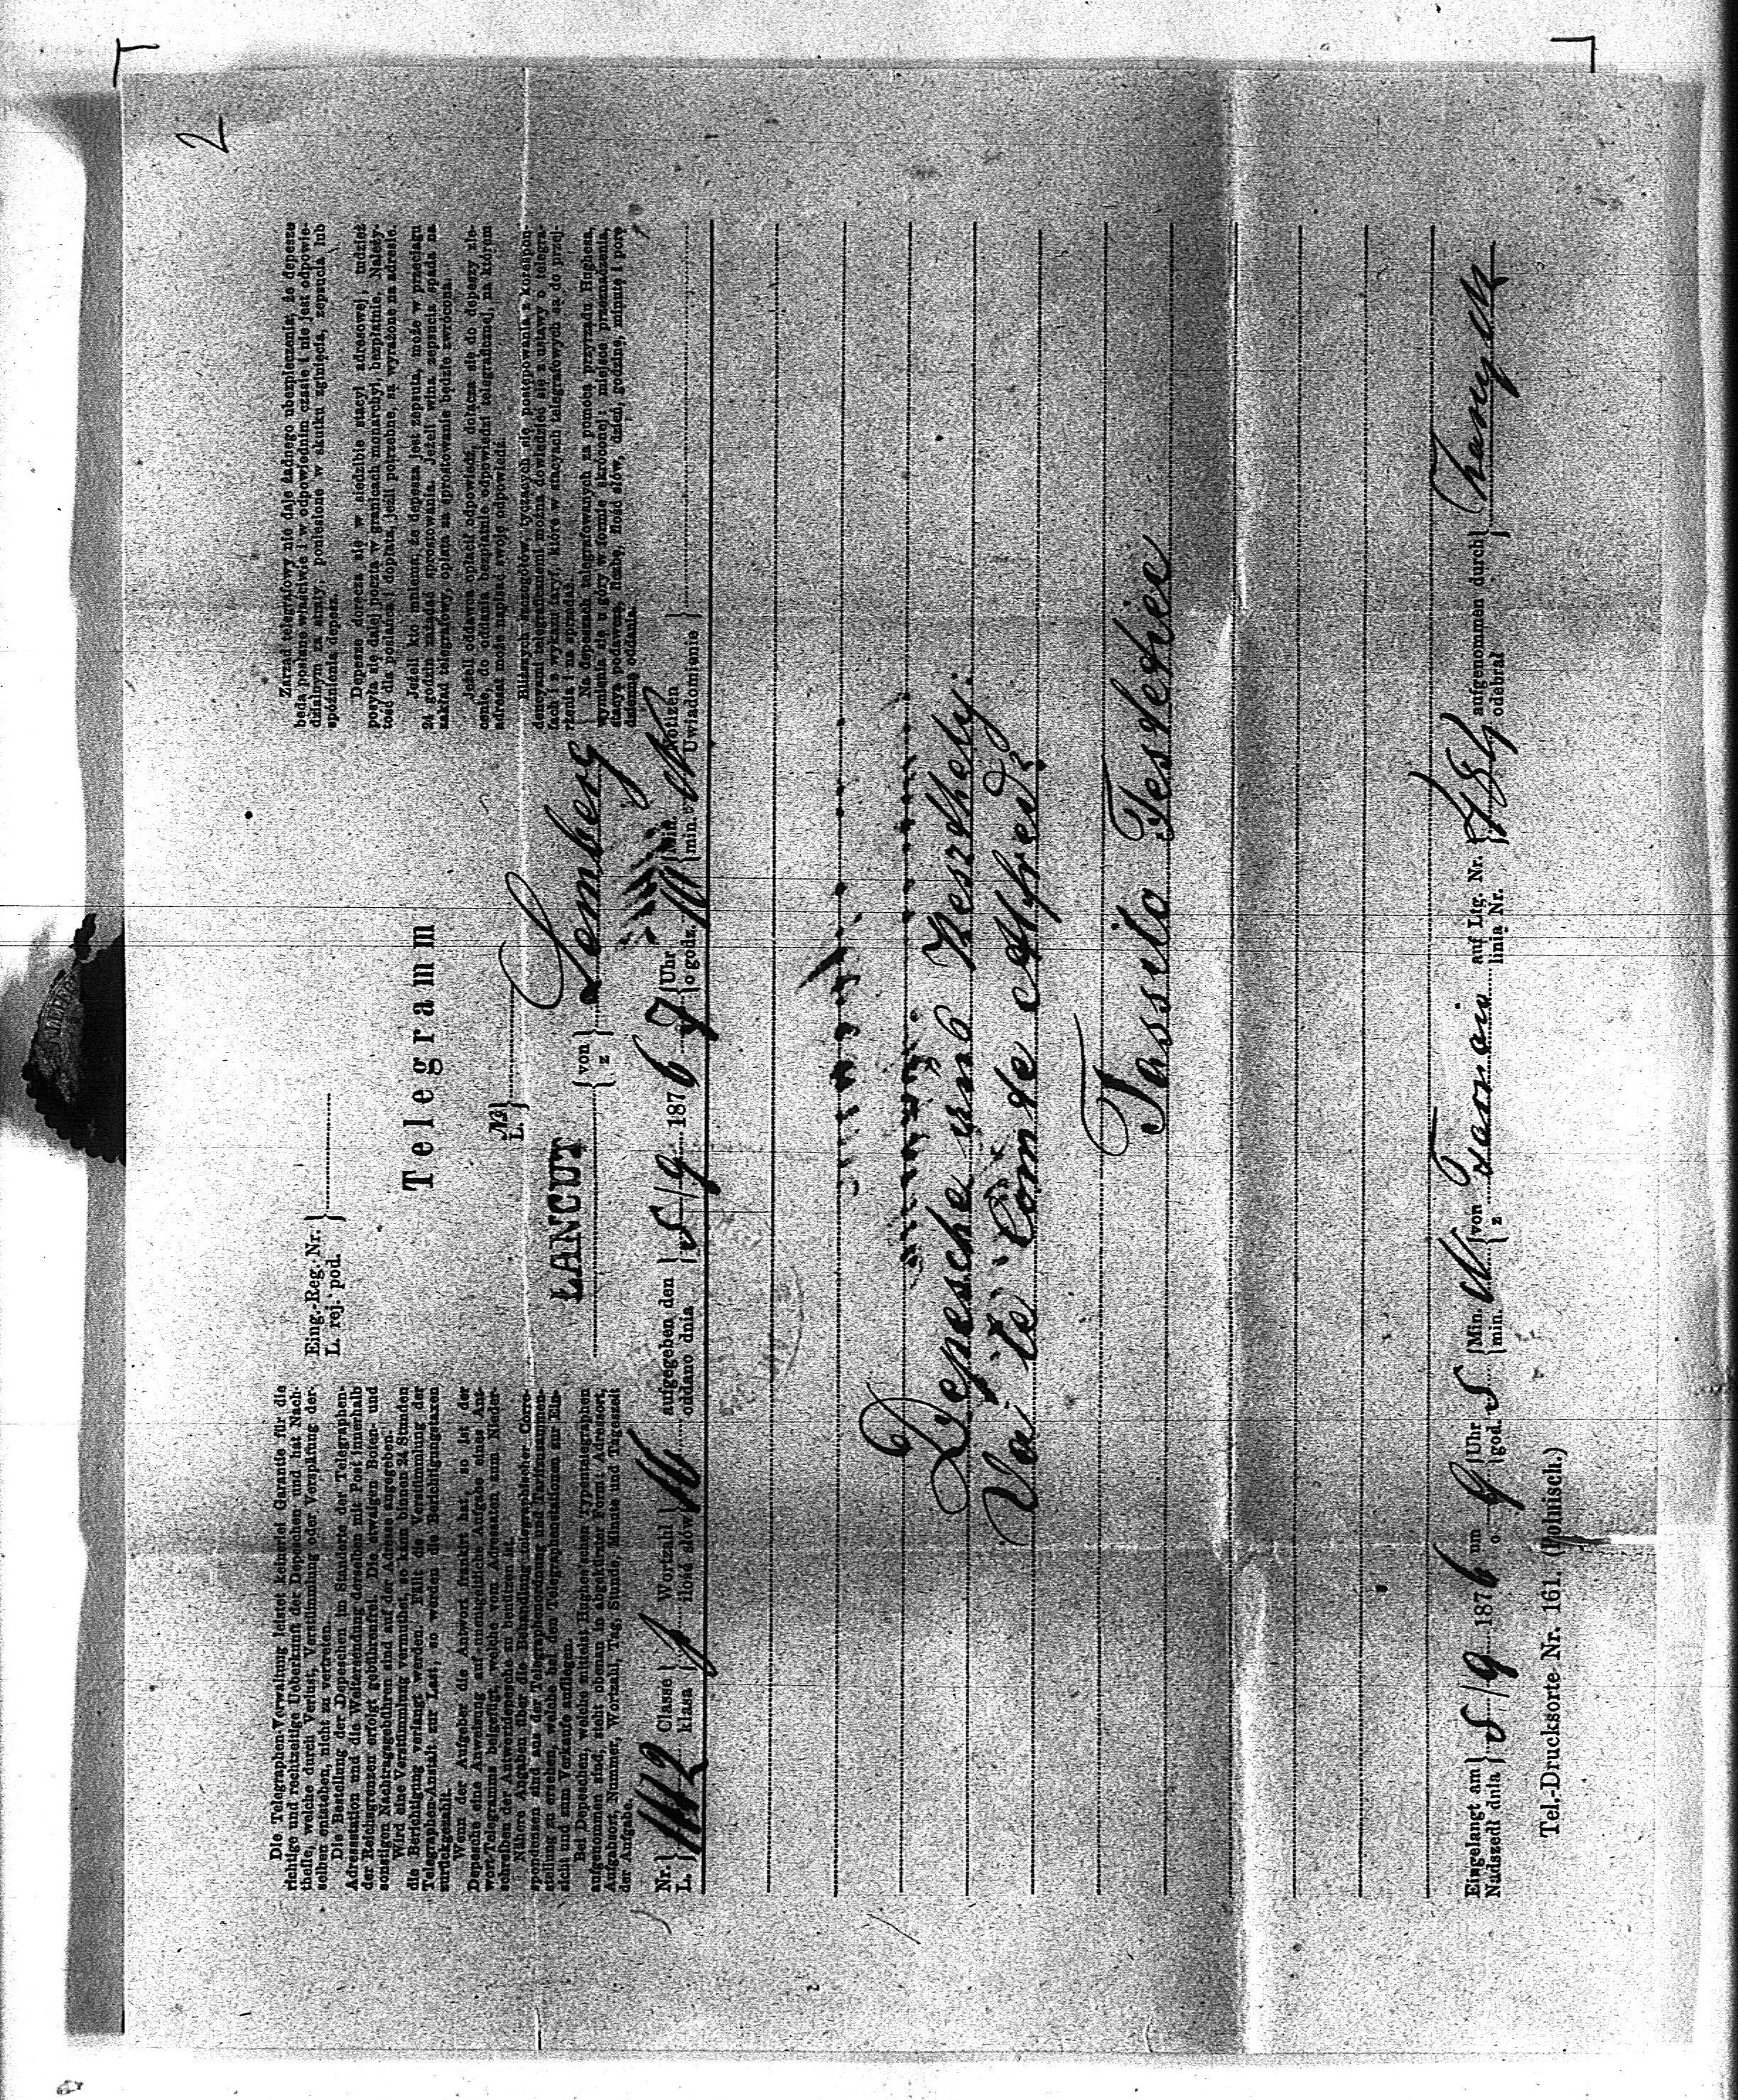 2
Die Telegraphen-Verwaltung leistet keinerlei Garantie für die
richtige und rechtzeitige Ueberkunft der Depeschen und hat Nach-
theile, welche durch Verlust, Verstümmlung oder Verspätung der-
selben entstehen, nicht zu vertreten.
Die Bestellung der Depeschen im Standorte der Telegraphen-
Adressstation und die Weitersendung derselben mit Post innerhalb
der Reichsgrenzen erfolgt gebührenfrei. Die etwaigen Boten- und
sonstigen Nachtragsgebühren sind auf der Adresse angegeben.
Wird eine Verstümmlung vermuthet, so kann binnen 24 Stunden
die Berichtigung verlangt werden. Fällt die Verstümmlung der
Telegraphen-Anstalt zur Last, so werden die Berichtigungstaxen
zurückgezahlt.
Wenn der Aufgeber die Antwort frankirt hat, so ist der
Depesche eine Anweisung auf unentgeltliche Aufgabe eines Ant-
wort-Telegramms beigefügt, welche vom Adressaten zum Nieder-
schreiben der Antwortdepesche zu benützen ist.
Nähere Angaben über die Behandlung telegraphischer Corre-
spondenzen sind aus der Telegraphenordnung und Tarifzusammen-
stellung zu ersehen, welche bei den Telegraphenstationen zur Ein-
sicht und zum Verkaufe aufliegen.
Bei Depeschen, welche mittelst Hughes'schen Typentelegraphen
aufgenommen sind, steht obenan in abgekürzter Form: Adressort,
Aufgabsort, Nummer, Wortzahl, Tag, Stunde, Minute und Tageszeit
der Aufgabe.
Eing.-Reg. Nr.
L. rej. pod.
Telegramm
Nr.
L.
ŁAŃCUT von z Lemberg
Zarząd telegrafowy nie daje żadnego ubezpieczenia, że depesze
będą posłane właściwie i w odpowiednim czasie i nie jest odpowie-
dzialnym za straty, poniesione w skutku zginięcia, zepsucia lub
spóźnienia depesz.
Depesze doręcza się w siedzibie stacyi adresowej, tudzież
posyła się dalej pocztą w granicach monarchyi, bezpłatnie. Należy-
tość dla posłańca i dopłata, jeżeli potrzebne, są wyrażone na adresie.
Jeżeli kto mniema, że depesza jest zepsuta, może w przeciągu
24 godzin zażądać sprostowania. Jeżeli wina zepsucia spada na
zakład telegrafowy, opłata za sprostowanie będzie zwrócona.
Jeżeli oddawca opłacił odpowiedź, dołącza się do depeszy zle-
cenie, do oddania bezpłatnie odpowiedzi telegraficznej, na którem
adresat może napisać swoję odpowiedź.
Bliższych szczegółów, tyczących się postępowania z korespon-
dencyami telegraficznemi można dowiedzieć się z ustawy o telegra-
fach i z wykazu taryf, które w stacyach telegrafowych są do przej-
rzenia i na sprzedaż.
Na depeszach telegrafowanych za pomocą przyrządu Hughesa,
wymienia się u góry w formie skróconej: miejsce przeznaczenia,
stacyą podawczą, liczbę, ilość słów, dzień, godzinę, minutę i porę
dzienną oddania.
Nr. L. 1112 Classe klasa Wortzahl ilość słów 16 aufgegeben den oddano dnia 5/9 1876 7 Uhr o godz. 10 Min. min. Notizen Uwiadomienie
Depesche aus Keszthely.
Va te Comte Alfred
Tassilo Festetics
Eingelangt am Nadszedł dnia 5/9 1876 um o 9 Uhr god. 5 Min. min. von z Tarnow auf Ltg. Nr. linia Nr. aufgenommen durch odebrał
Tel.-Drucksorte Nr. 161. (Polnisch.)